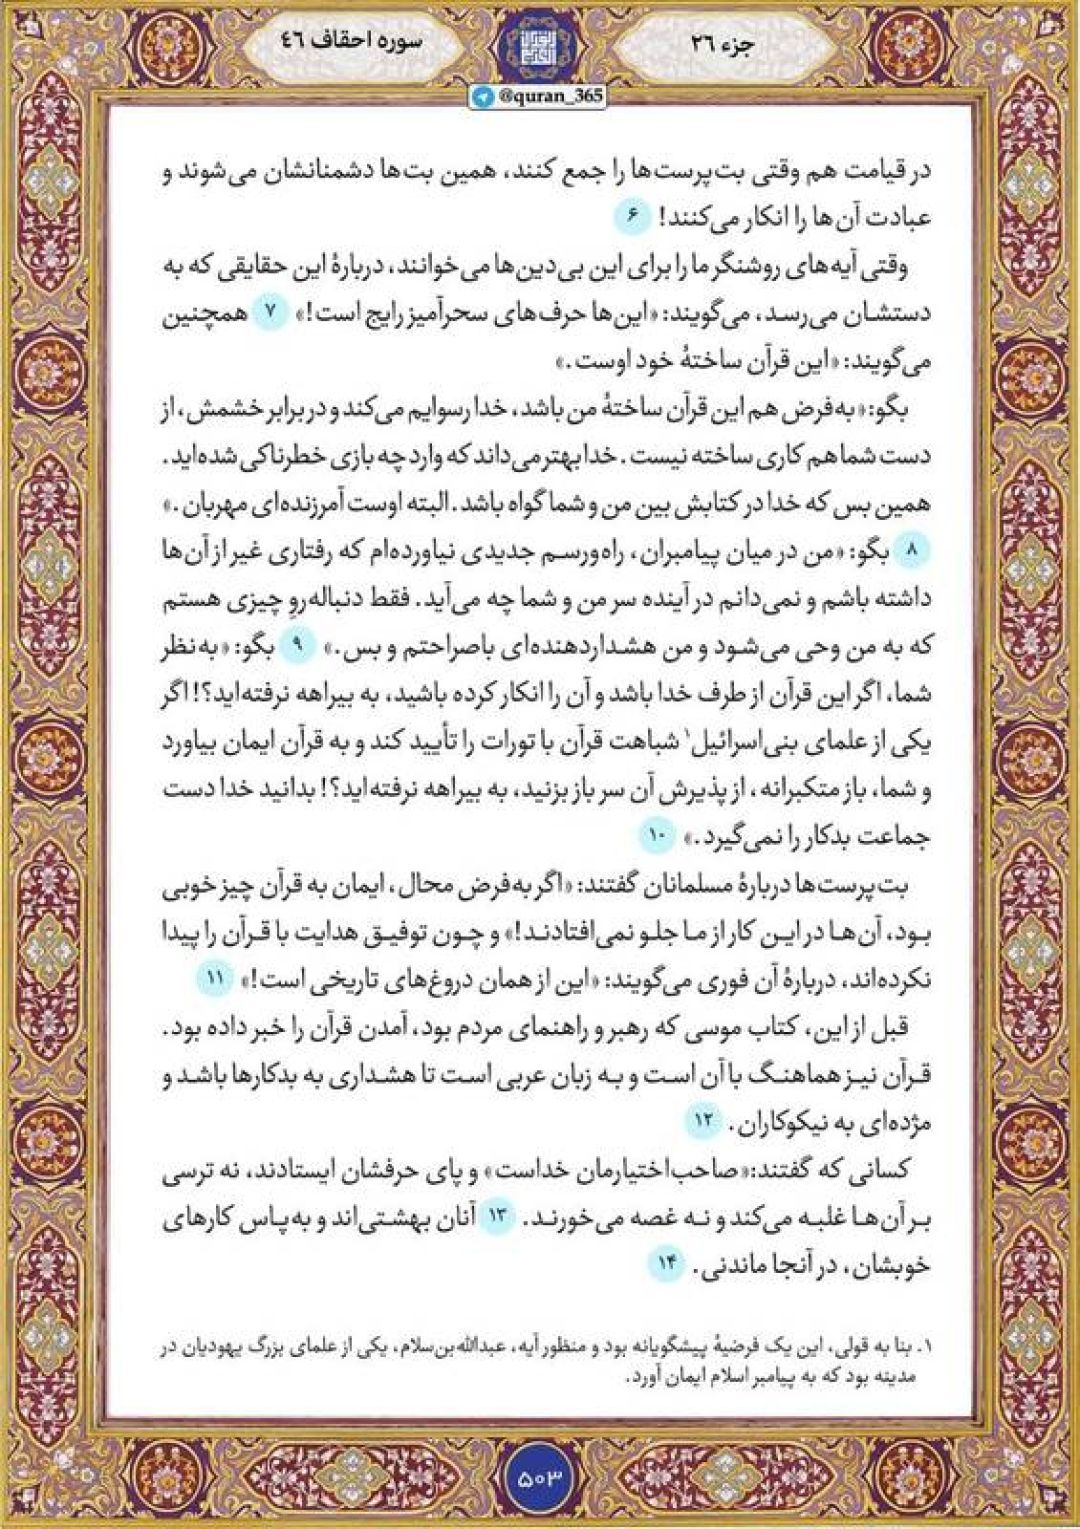 جزء ۲۶
سوره احقاف ٤٦
@quran_365
در قیامت هم وقتی بت‌پرست‌ها را جمع کنند، همین بت‌ها دشمنانشان می‌شوند و
عبادت آن‌ها را انکار می‌کنند! ۶
وقتی آیه‌های روشنگر ما را برای این بی‌دین‌ها می‌خوانند، دربارهٔ این حقایقی که به
دستشان می‌رسد، می‌گویند: «این‌ها حرف‌های سحرآمیز رایج است!» ۷ همچنین
می‌گویند: «این قرآن ساختهٔ خود اوست.»
بگو: «به‌فرض هم این قرآن ساختهٔ من باشد، خدا رسوایم می‌کند و در برابر خشمش، از
دست شما هم کاری ساخته نیست. خدا بهتر می‌داند که وارد چه بازی خطرناکی شده‌اید.
همین بس که خدا در کتابش بین من و شما گواه باشد. البته اوست آمرزنده‌ای مهربان.»
۸ بگو: «من در میان پیامبران، راه‌ورسم جدیدی نیاورده‌ام که رفتاری غیر از آن‌ها
داشته باشم و نمی‌دانم در آینده سر من و شما چه می‌آید. فقط دنباله‌روِ چیزی هستم
که به من وحی می‌شود و من هشداردهنده‌ای باصراحتم و بس.» ۹ بگو: «به‌نظر
شما، اگر این قرآن از طرف خدا باشد و آن را انکار کرده باشید، به بیراهه نرفته‌اید؟! اگر
یکی از علمای بنی‌اسرائیل۱ شباهت قرآن با تورات را تأیید کند و به قرآن ایمان بیاورد
و شما، باز متکبرانه، از پذیرش آن سر باز بزنید، به بیراهه نرفته‌اید؟! بدانید خدا دست
جماعت بدکار را نمی‌گیرد.» ۱۰
بت‌پرست‌ها دربارهٔ مسلمانان گفتند: «اگر به‌فرض محال، ایمان به قرآن چیز خوبی
بود، آن‌ها در این کار از ما جلو نمی‌افتادند!» و چون توفیق هدایت با قرآن را پیدا
نکرده‌اند، دربارهٔ آن فوری می‌گویند: «این از همان دروغ‌های تاریخی است!» ۱۱
قبل از این، کتاب موسی که رهبر و راهنمای مردم بود، آمدن قرآن را خبر داده بود.
قرآن نیز هماهنگ با آن است و به زبان عربی است تا هشداری به بدکارها باشد و
مژده‌ای به نیکوکاران. ۱۲
کسانی که گفتند:«صاحب‌اختیارمان خداست» و پای حرفشان ایستادند، نه ترسی
بر آن‌ها غلبه می‌کند و نه غصه می‌خورند. ۱۳ آنان بهشتی‌اند و به‌پاس کارهای
خوبشان، در آنجا ماندنی. ۱۴
۱. بنا به قولی، این یک فرضیهٔ پیشگویانه بود و منظور آیه، عبدالله‌بن‌سلام، یکی از علمای بزرگ یهودیان در
مدینه بود که به پیامبر اسلام ایمان آورد.
۵۰۳